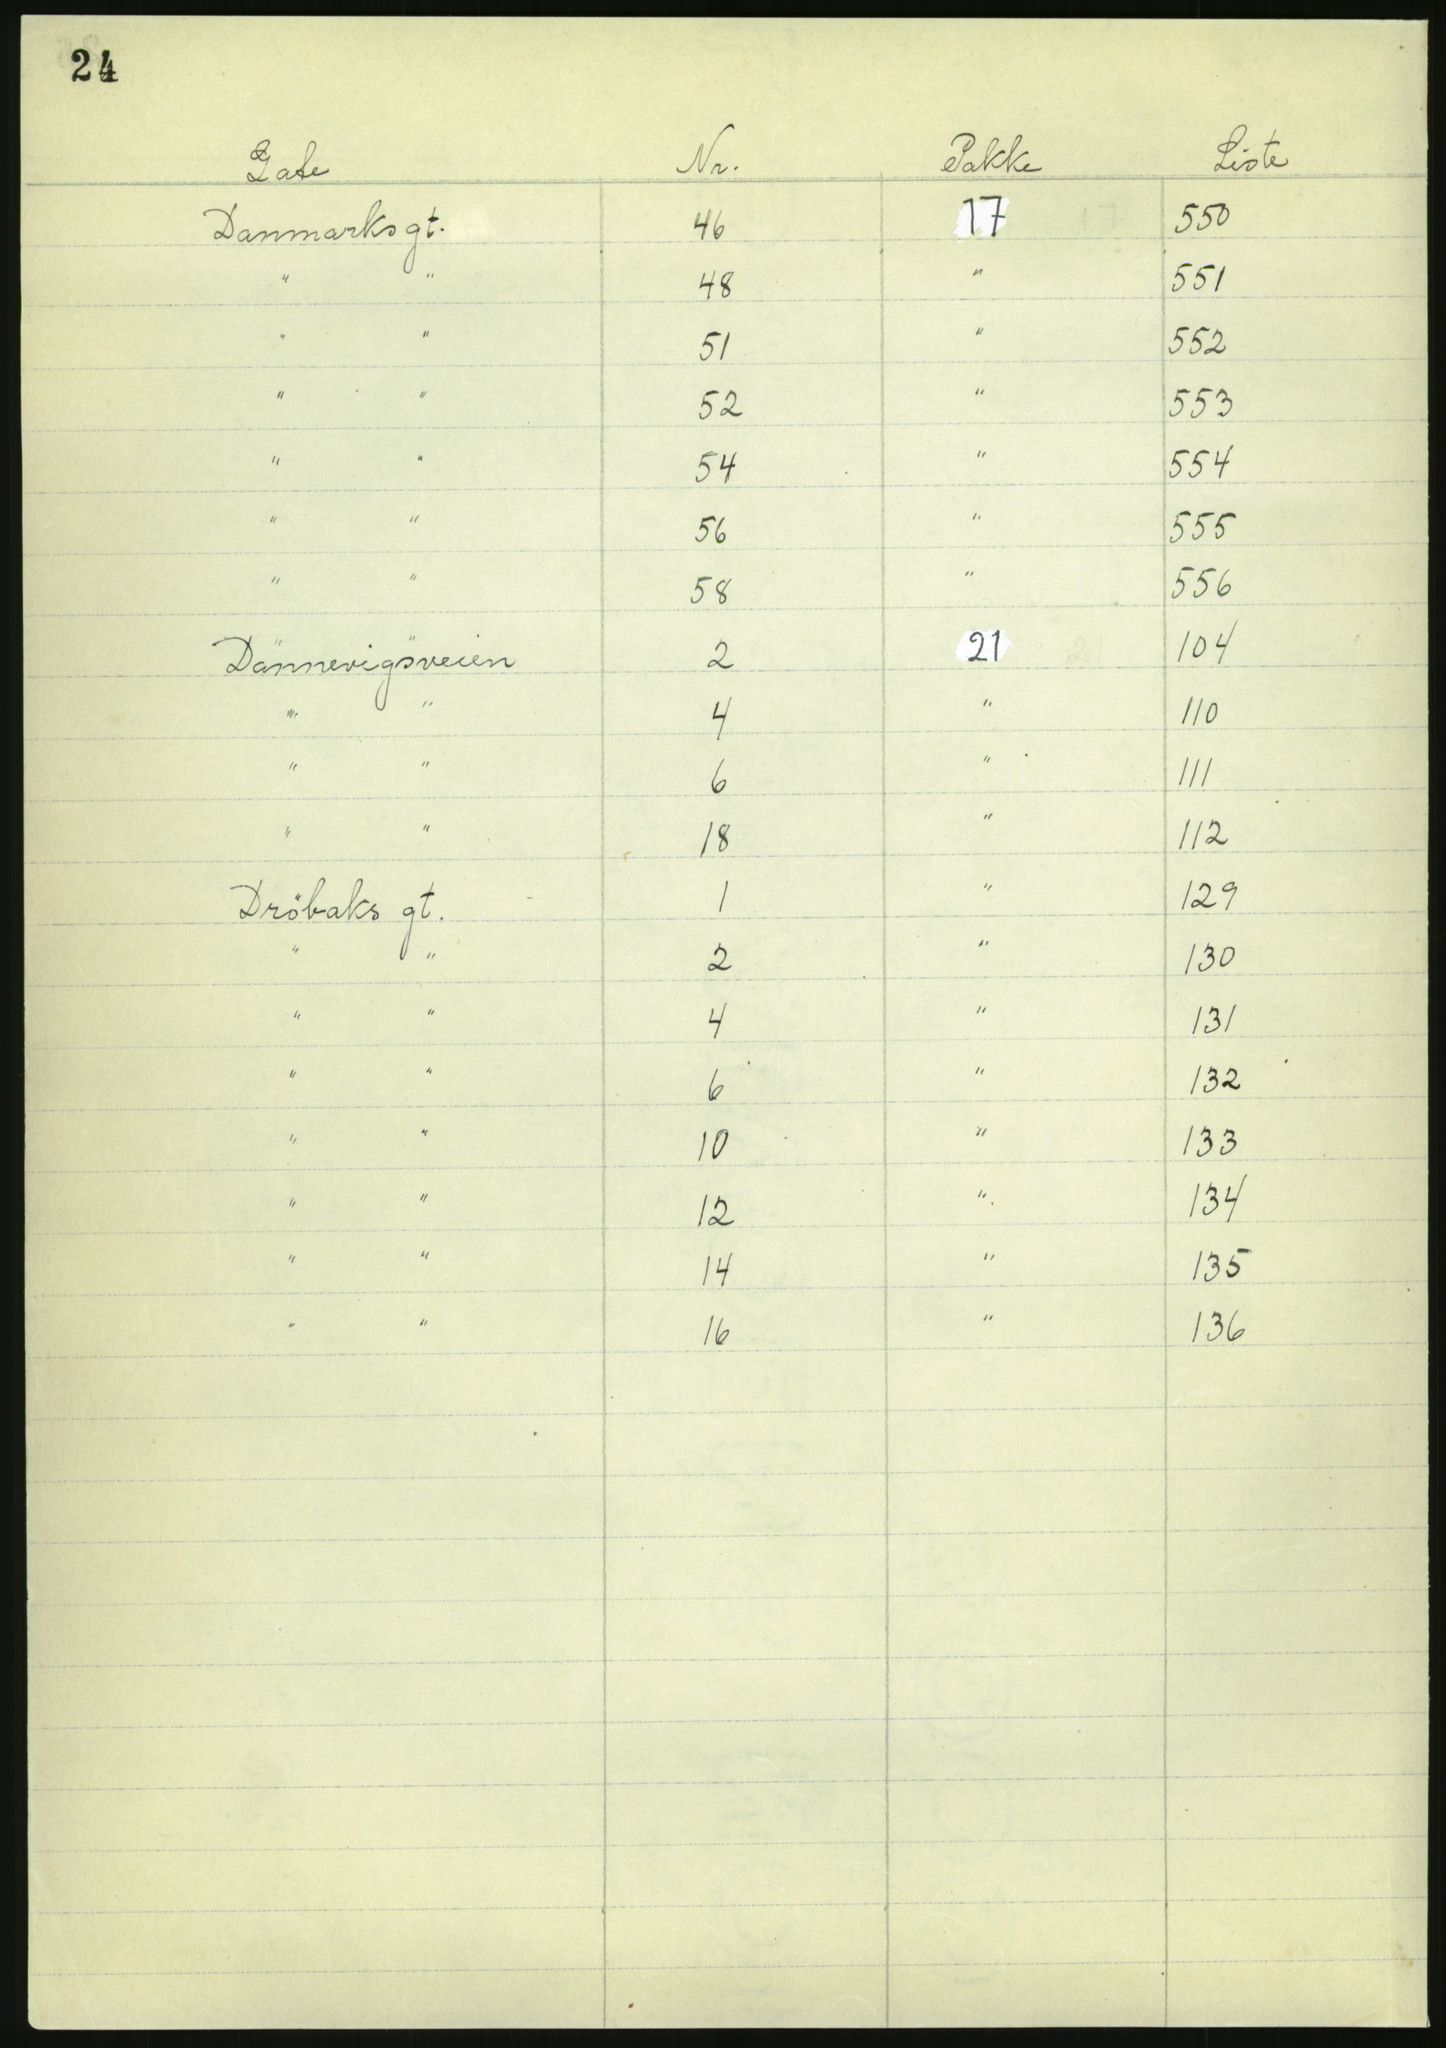 24
Gate Nr. Pakke Liste
Danmarksgt. 46 17 550
" " 48 " 551
" " 51 " 552
" " 52 " 553
" " 54 " 554
" " 56 " 555
" " 58 " 556
Dannevigsveien 2 21 104
" " 4 " 110
" " 6 " 111
" " 18 " 112
Dröbaks gt. 1 " 129
" " 2 " 130
" " 4 " 131
" " 6 " 132
" " 10 " 133
" " 12 " 134
" " 14 " 135
" " 16 " 136